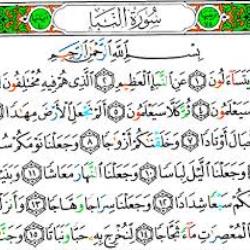 سُورَةُ النَّبَإِ
بِسْمِ اللَّهِ الرَّحْمَٰنِ الرَّحِيمِ
يَتَسَاءَلُونَ ١ عَنِ النَّبَإِ الْعَظِيمِ ٢ الَّذِي هُمْ فِيهِ مُخْتَلِفُونَ
سَيَعْلَمُونَ ٤ ثُمَّ كَلَّا سَيَعْلَمُونَ ٥ أَلَمْ نَجْعَلِ الْأَرْضَ مِهَادًا
أَوْتَادًا ٧ وَخَلَقْنَاكُمْ أَزْوَاجًا ٨ وَجَعَلْنَا نَوْمَكُمْ
وَجَعَلْنَا اللَّيْلَ لِبَاسًا ١٠ وَجَعَلْنَا النَّهَارَ مَعَاشًا ١١ وَبَنَيْنَا
سَبْعًا شِدَادًا ١٢ وَجَعَلْنَا سِرَاجًا وَهَّاجًا ١٣ وَأَنْزَلْنَا
الْمُعْصِرَاتِ مَاءً ثَجَّاجًا ١٤ لِنُخْرِجَ بِهِ حَبًّا وَنَبَاتًا ١٥